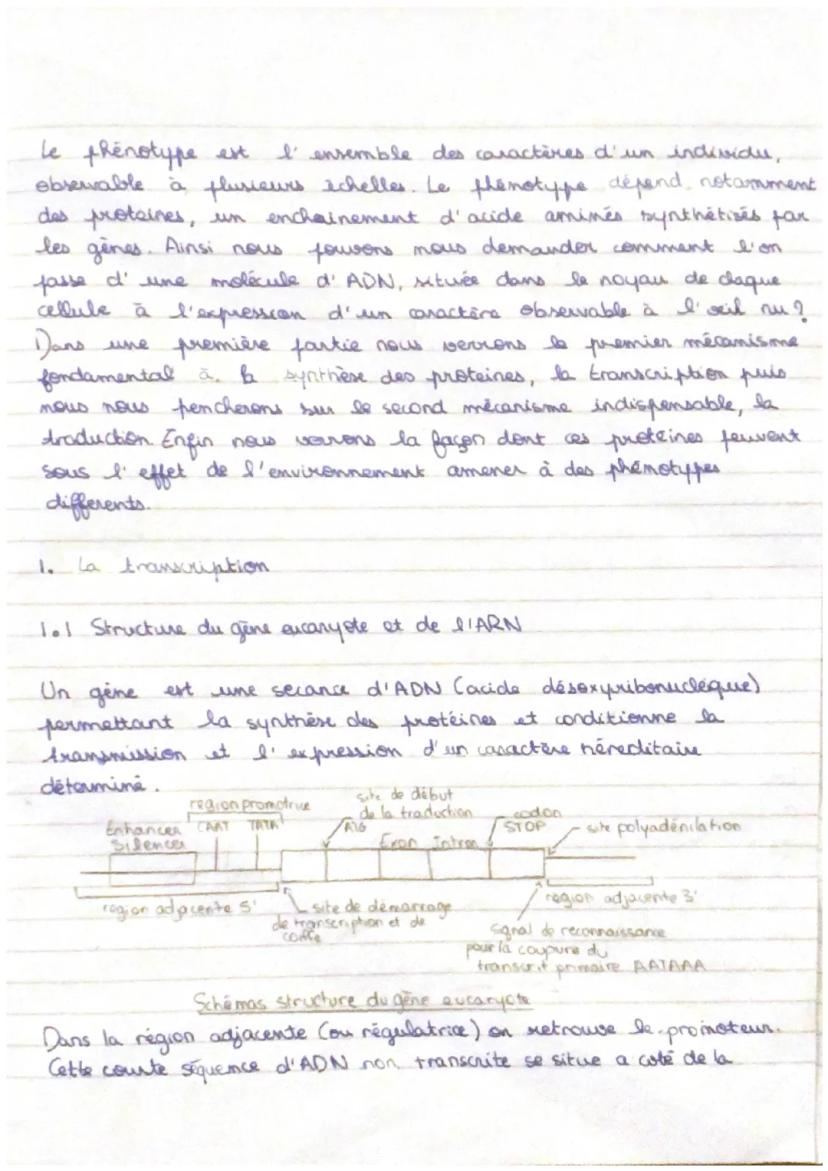 Le phénotype est l'ensemble des caractères d'un individu,
observable à plusieurs échelles. Le phénotype dépend notamment
des protaines, un enchainement d'acide aminés synthétisés par
les gènes. Ainsi nous pouvons nous demander comment l'on
passe d'une molécule d'ADN, située dans le noyau de chaque
cellule à l'expression d'un caractère observable à l'œil nu ?
Dans une première partie nous verrons le premier mécanisme
fondamental à la synthèse des proteines, la transcription puis
nous nous pencherons sur le second mécanisme indispensable, la
traduction. Enfin nous verrons la façon dont ces protéines peuvent
sous l'effet de l'environnement amener à des phénotypes
differents.
1. La transcription
1.1 Structure du gène eucaryote et de l'ARN
Un gène est une secance d'ADN (acide désoxyribonucléique)
permettant la synthèse des protéines et conditionne la
transmission et l'expression d'un caractère héreditaire
déterminé.
region promotrice
site de début
de la traduction
Enhancer
Silencer
CAAT TATA
ATG
codon
STOP
site polyadénilation
Exon Intron
region adjacente 5'
site de démarrage
de transcription et de
coiffe
region adjacente 3'
signal de reconnaissance
pour la coupure du
transcrit primaire AATAAA
Schémas structure du gène eucaryote
Dans la région adjacente (ou régulatrice) on retrouve le promoteur.
Cette courte séquence d'ADN non transcrite se situe a coté de la